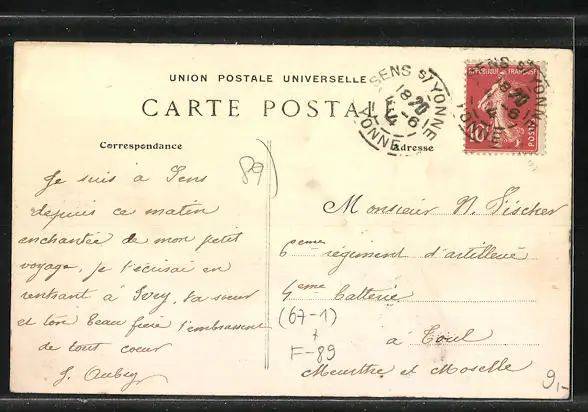 UNION POSTALE UNIVERSELLE
CARTE POSTALE
Correspondance
Adresse
SENS S/ YONNE
18 20
4 - 6
YONNE
REPUBLIQUE FRANCAISE
10
POSTES
SENS S/ YONNE
89)
Je suis à Sens
depuis ce matin
enchantée de mon petit
voyage, je t'écrirai en
rentrant à Ivry, ta sœur
et ton beau frère t'embrassent
de tout cœur
J. Aubry
Monsieur N. Fischer
6eme régiment d'artillerie
4eme batterie
à Toul
Meurthe et Moselle
(67-1)
+
F-89
9,-